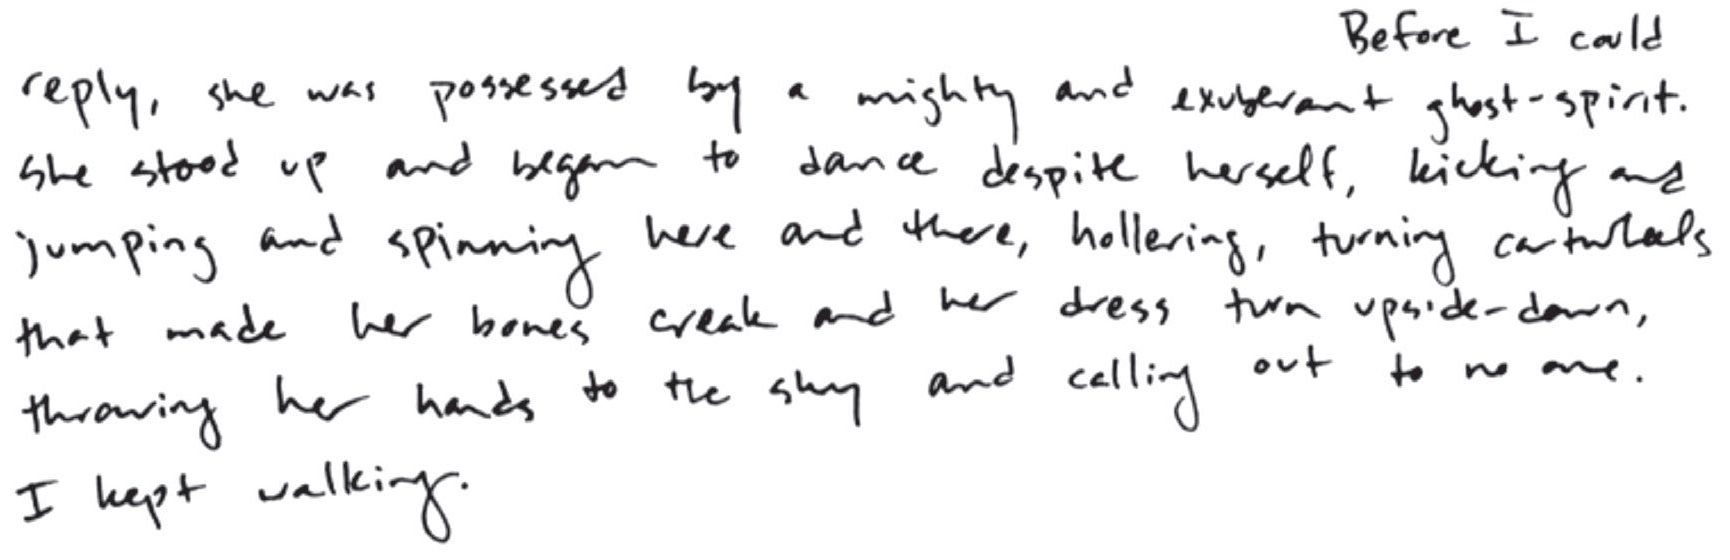 Before I could
reply, she was possessed by a mighty and exuberant ghost-spirit.
She stood up and began to dance despite herself, kicking and
jumping and spinning here and there, hollering, turning cartwheels
that made her bones creak and her dress turn upside-down,
throwing her hands to the sky and calling out to no one.
I kept walking.